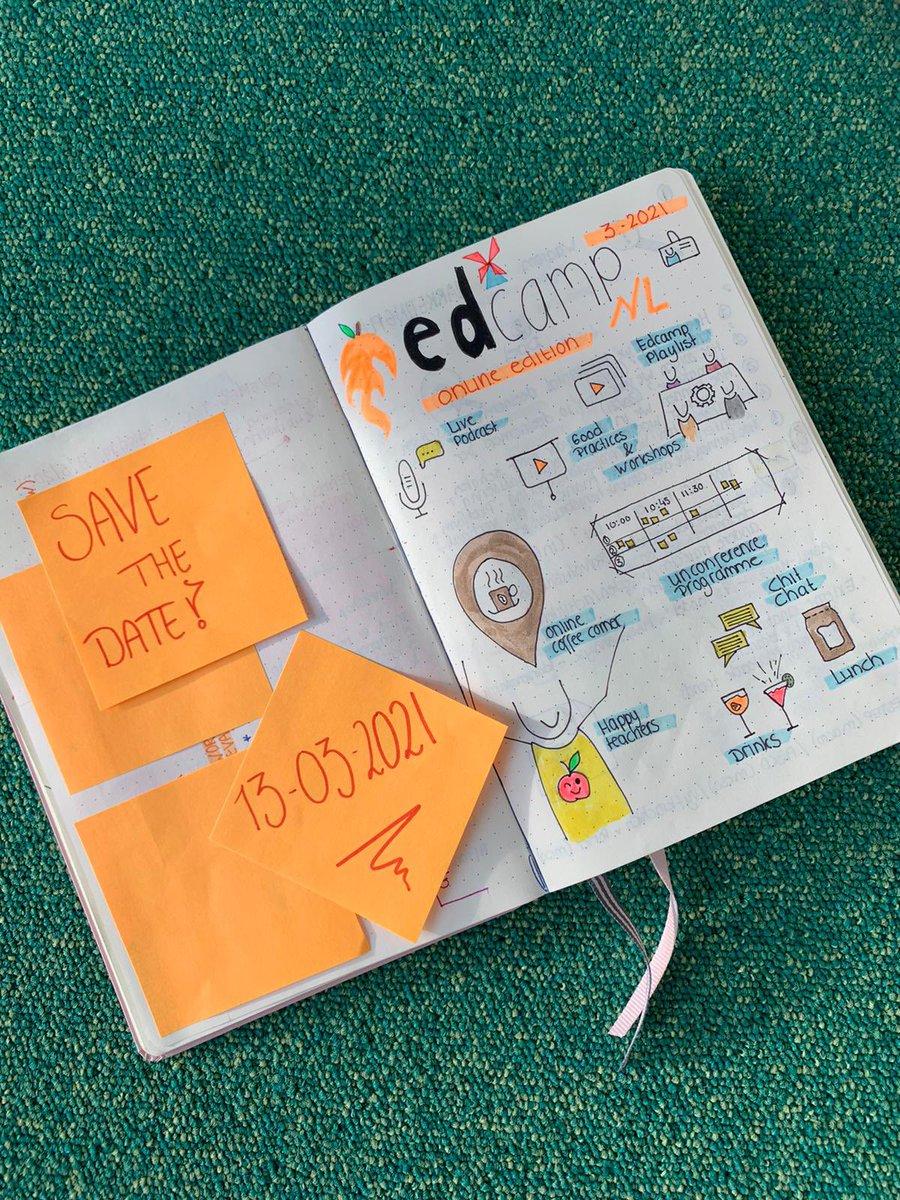 SAVE
THE
DATE!
13-03-2021
3.-2021
edcamp
NL
online edition
Edcamp
Playlist
Live
Podcast
Good
Practices
&
Workshops
10:00 10:45 11:30
1
2
3
unconference
Programme
Online
coffee corner
Chit
Chat
Lunch
Happy
teachers
Drinks